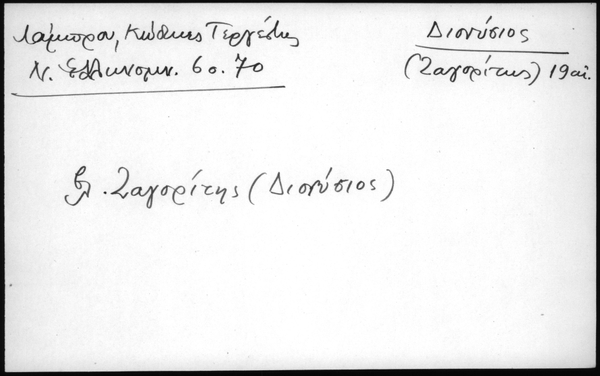 Λάμπρου, Κώδικες Τεργέστης
Ν. Ἑλληνομν. 60. 70
Διονύσιος
(Ζαγορίτης) 19 αἰ.
βλ. Ζαγορίτης (Διονύσιος)